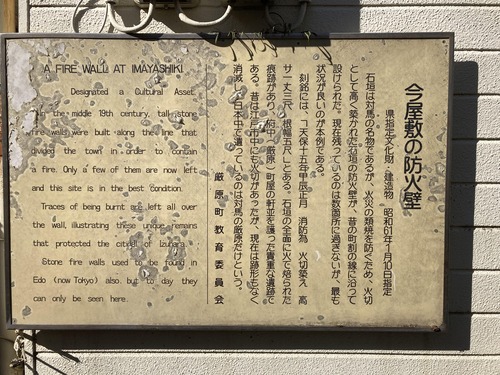 A FIRE WALL AT IMAYASHIKI
Designated a Cultural Asset.
In the middle 19th century, tall stone
fire walls were built along the line that
divided the town in order to contain
a fire. Only a few of them are now left
and this site is in the best condition.
Traces of being burnt are left all over
the wall, illustrating these unique remains
that protected the citizens of Izuhara.
Stone fire walls used to be found in
Edo (now Tokyo) also but to day they
can only be seen here.
今屋敷の防火壁
県指定文化財(建造物) 昭和61年1月10日指定
石垣は対馬の名物であるが、火災の類焼を防ぐため、火切
として高く築かれた石垣の防火壁が、昔の町割の線に沿って
設けられた。現在残っているのは数箇所に過ぎないが、最も
状況が良いのが本例である。
刻銘には、「天保十五年甲辰正月 消防為 火切築え 高
サ一丈三尺、根幅五尺」とある。石垣の全面に火で焙られた
痕跡があり、府中(厳原)町屋の軒並を護った貴重な遺跡で
ある。昔は江戸市中にも火切があったが、現在は跡形もなく
消滅し、日本中で遺っているのは対馬の厳原だけという。
厳原町教育委員会